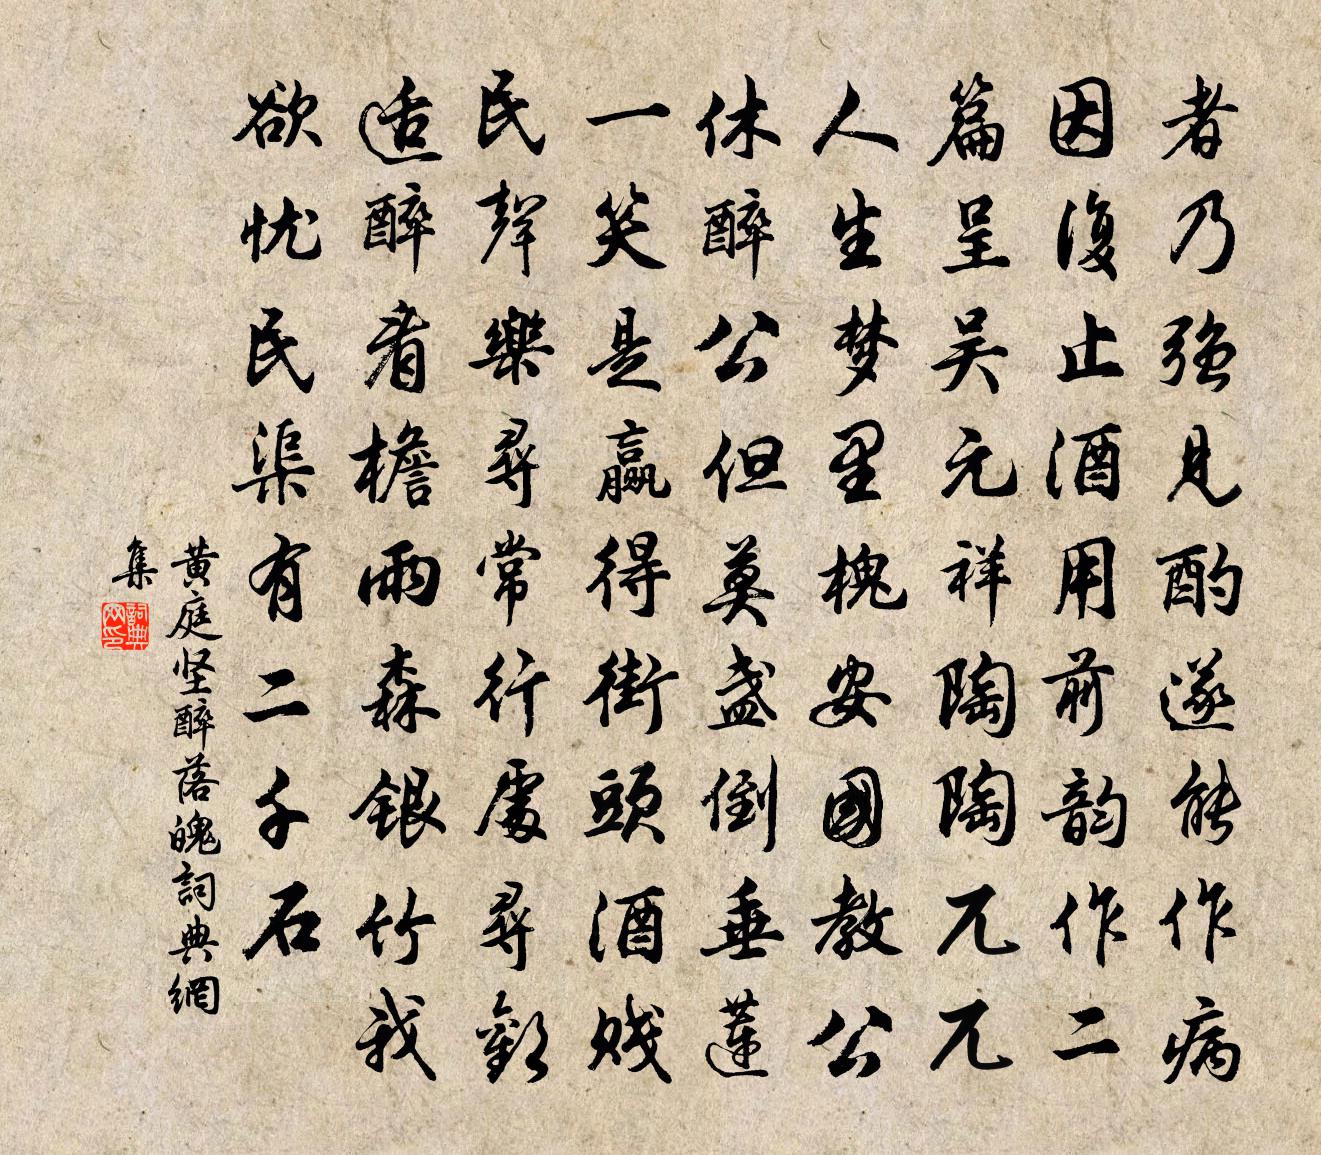 者乃强見酌遂能作病
因復止酒用前韵作二
篇呈吴元祥陶陶兀兀
人生梦里槐安國教公
休醉公但莫盏倒垂蓮
一笑是赢得街頭酒贱
民聲樂尋常行處尋歡
适醉看檐雨森銀竹我
欲忧民渠有二千石
黄庭坚醉落魄詞典網
集
詞典
网印